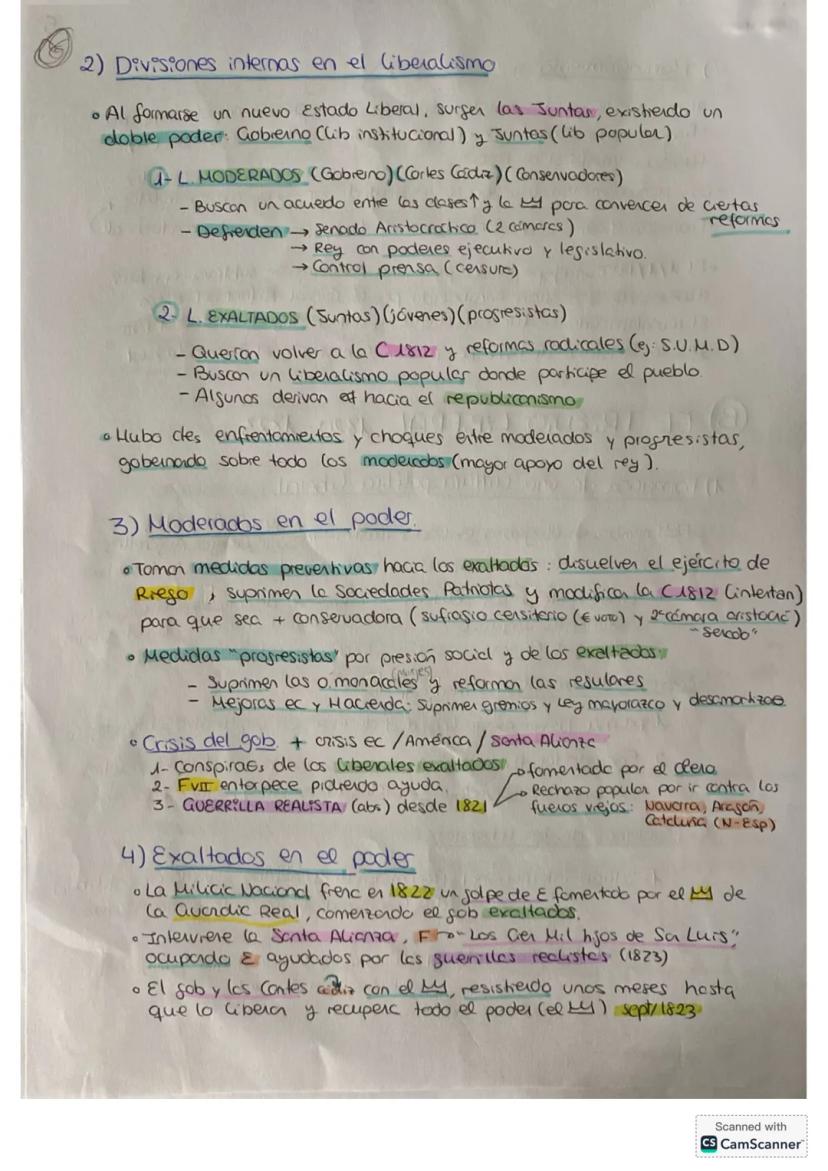 2) Divisiones internas en el liberalismo
• Al formarse un nuevo Estado Liberal, surgen las Juntas, existiendo un
doble poder: Gobierno (lib institucional) y Juntas (lib popular)
1- L. MODERADOS (Gobierno) (Cortes Cádiz) (Conservadores)
- Buscan un acuerdo entre las clases ↑ y la para convencer de ciertas
reformas
- Defienden → Senado Aristocrático (2 cámaras)
→ Rey con poderes ejecutivo y legislativo.
→ Control prensa (censura)
2- L. EXALTADOS (Juntas) (jóvenes) (progresistas)
- Querían volver a la C 1812 y reformas radicales (ej: S.U.M.D)
- Buscan un liberalismo popular donde participe el pueblo.
- Algunos derivan hacia el republicanismo
• Hubo enfrentamientos y choques entre moderados y progresistas,
gobernando sobre todo los moderados (mayor apoyo del rey).
3) Moderados en el poder.
• Toman medidas preventivas hacia los exaltados: disuelven el ejército de
Riego, suprimen la Sociedades Patriotas y modifican la C1812 (intentan)
para que sea + conservadora (sufragio censitario (€ voto) y 2ª cámara aristocrác)
• Medidas "progresistas" por presión social y de los exaltados:
- Suprimen las o. monacales y reforman las regulares
- Mejoras ec y Hacienda: suprimen gremios y Ley mayorazco y
• Crisis del gob. + crisis ec / América / Santa Alianza
1- Conspirac, de los liberales exaltados
2- FVII entorpece pidiendo ayuda.
3- GUERRILLA REALISTA (abs) desde 1821
→ fomentada por el clero
→ Rechazo popular por ir contra los
fueros viejos: Navarra, Aragón,
Cataluña (N-Esp)
4) Exaltados en el poder
• La Milicia Nacional frena en 1822 un golpe de E fomentado por el de
la Guardia Real, comenzando el gob exaltados.
• Interviene la Santa Alianza, "Los Cien Mil hijos de San Luis",
ocupando E ayudados por las guerrillas realistas (1823)
• El gob y las Cortes con el, resistiendo unos meses hasta
que lo liberan y recupera todo el poder (el) sept/1823
Scanned with
CS CamScanner